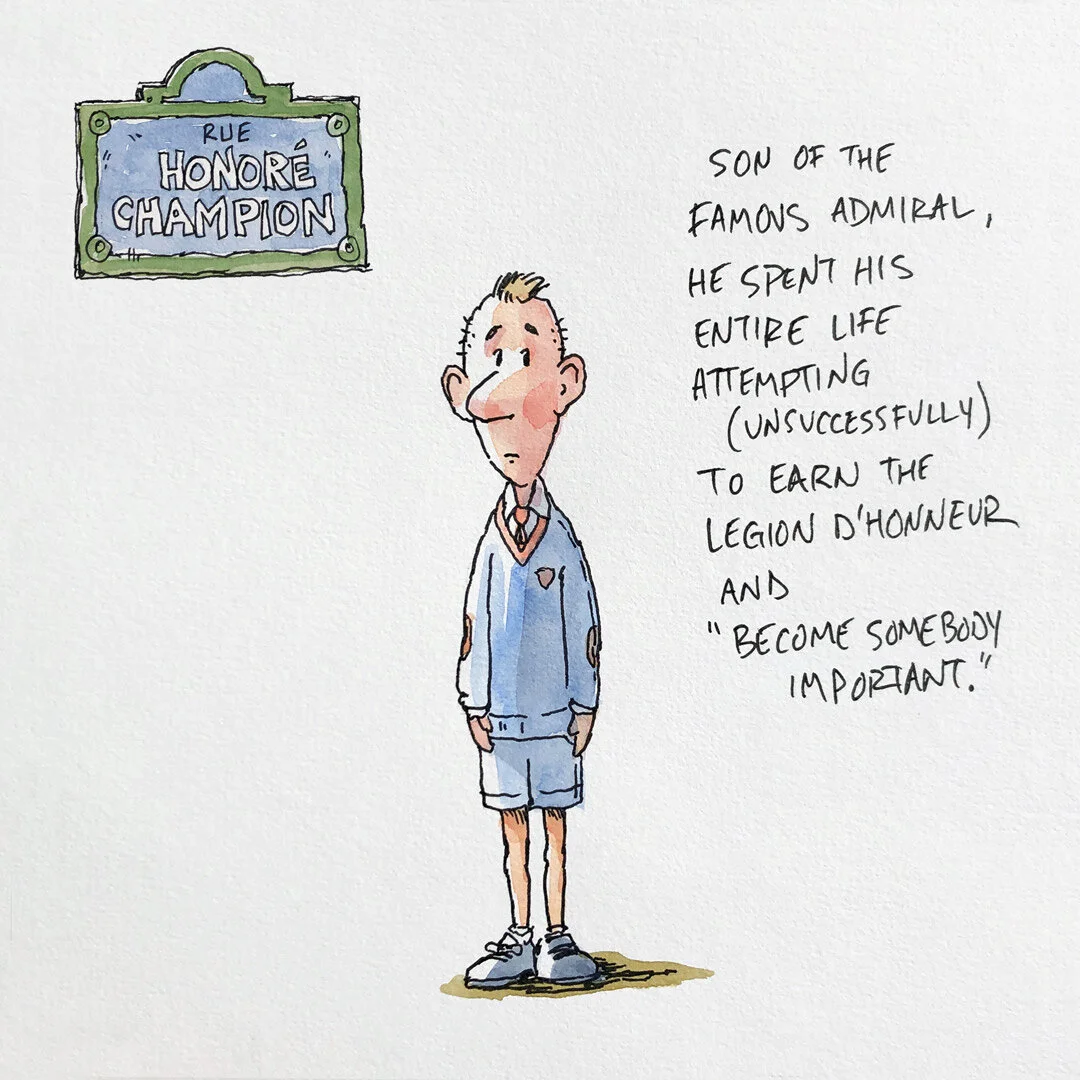 RUE
HONORÉ
CHAMPION
SON OF THE
FAMOUS ADMIRAL,
HE SPENT HIS
ENTIRE LIFE
ATTEMPTING
(UNSUCCESSFULLY)
TO EARN THE
LEGION D'HONNEUR
AND
"BECOME SOMEBODY
IMPORTANT."